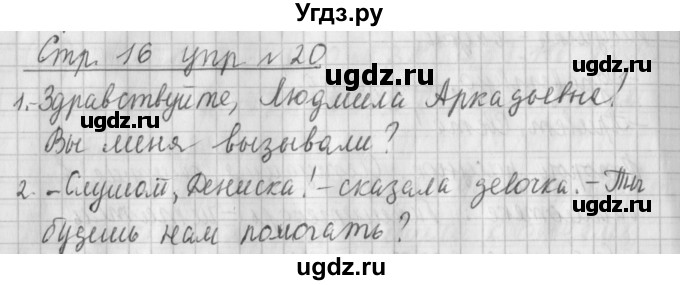 Угдз.ру
Стр. 16 упр № 20
ugdz.ru
ugdz.ru
1.-Здравствуйте, Людмила Аркадьевна!
ugdz.ru
ugdz.ru
Вы меня вызывали?
2. -Слушом, Дениска!-сказала девочка.-Ты
ugdz.ru
будешь нам помогать?
ugdz.ru
ugdz.ru